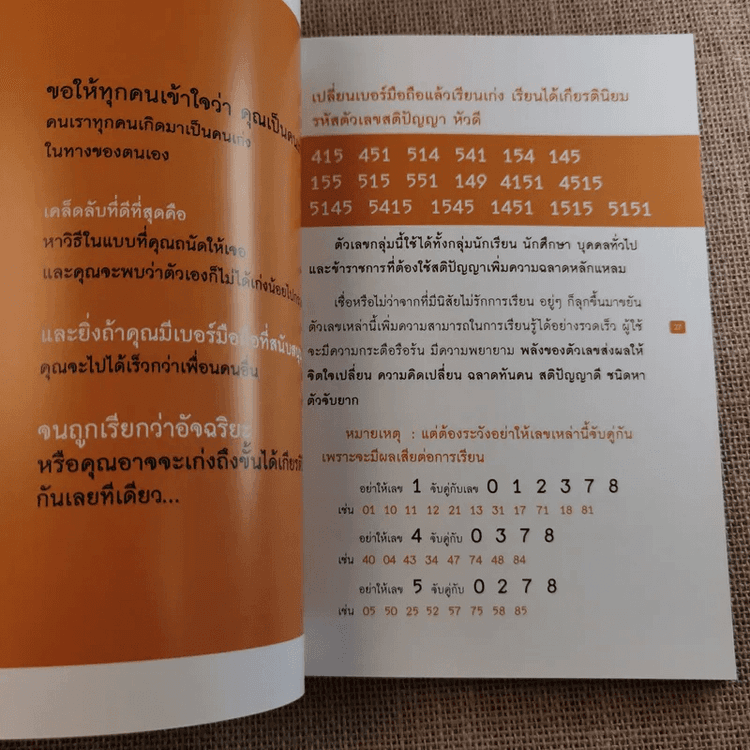 ขอให้ทุกคนเข้าใจว่า คุณเป็นคน
คนเราทุกคนเกิดมาเป็นคนเก่ง
ในทางของตนเอง
เคล็ดลับที่ดีที่สุดคือ
หาวิธีในแบบที่คุณถนัดให้เจอ
และคุณจะพบว่าตัวเองก็ไม่ได้เก่งน้อยไป
และยิ่งถ้าคุณมีเบอร์มือถือที่
คุณจะไปได้เร็วกว่าเพื่อนคนอื่น
จนถูกเรียกว่าอัจฉริยะ
หรือคุณอาจจะเก่งถึงขั้นได้เกียรติ
กันเลยทีเดียว...
เปลี่ยนเบอร์มือถือแล้วเรียนเก่ง เรียนได้เกียรตินิยม
รหัสตัวเลขสติปัญญา หัวดี
415 451 514 541 154 145
155 515 551 149 4151 4515
5145 5415 1545 1451 1515 5151
ตัวเลขกลุ่มนี้ใช้ได้ทั้งกลุ่มนักเรียน นักศึกษา บุคคลทั่วไป
และข้าราชการที่ต้องใช้สติปัญญาเพิ่มความฉลาดหลักแหลม
เชื่อหรือไม่ว่าจากที่มีนิสัยไม่รักการเรียน อยู่ๆ ก็ลุกขึ้นมาขยัน
ตัวเลขเหล่านี้เพิ่มความสามารถในการเรียนรู้ได้อย่างรวดเร็ว ผู้ใช้
จะมีความกระตือรือร้น มีความพยายาม พลังของตัวเลขส่งผลให้
จิตใจเปลี่ยน ความคิดเปลี่ยน ฉลาดทันคน สติปัญญาดี ชนิดหา
ตัวจับยาก
37
หมายเหตุ : แต่ต้องระวังอย่าให้เลขเหล่านี้จับคู่กัน
เพราะจะมีผลเสียต่อการเรียน
อย่าให้เลข 1 จับคู่กับเลข 0 1 2 3 7 8
เช่น 01 10 11 12 21 13 31 17 71 18 81
อย่าให้เลข 4 จับคู่กับ 0 3 7 8
เช่น 40 04 43 34 47 74 48 84
อย่าให้เลข 5 จับคู่กับ 0 2 7 8
เช่น 05 50 25 52 57 75 58 85